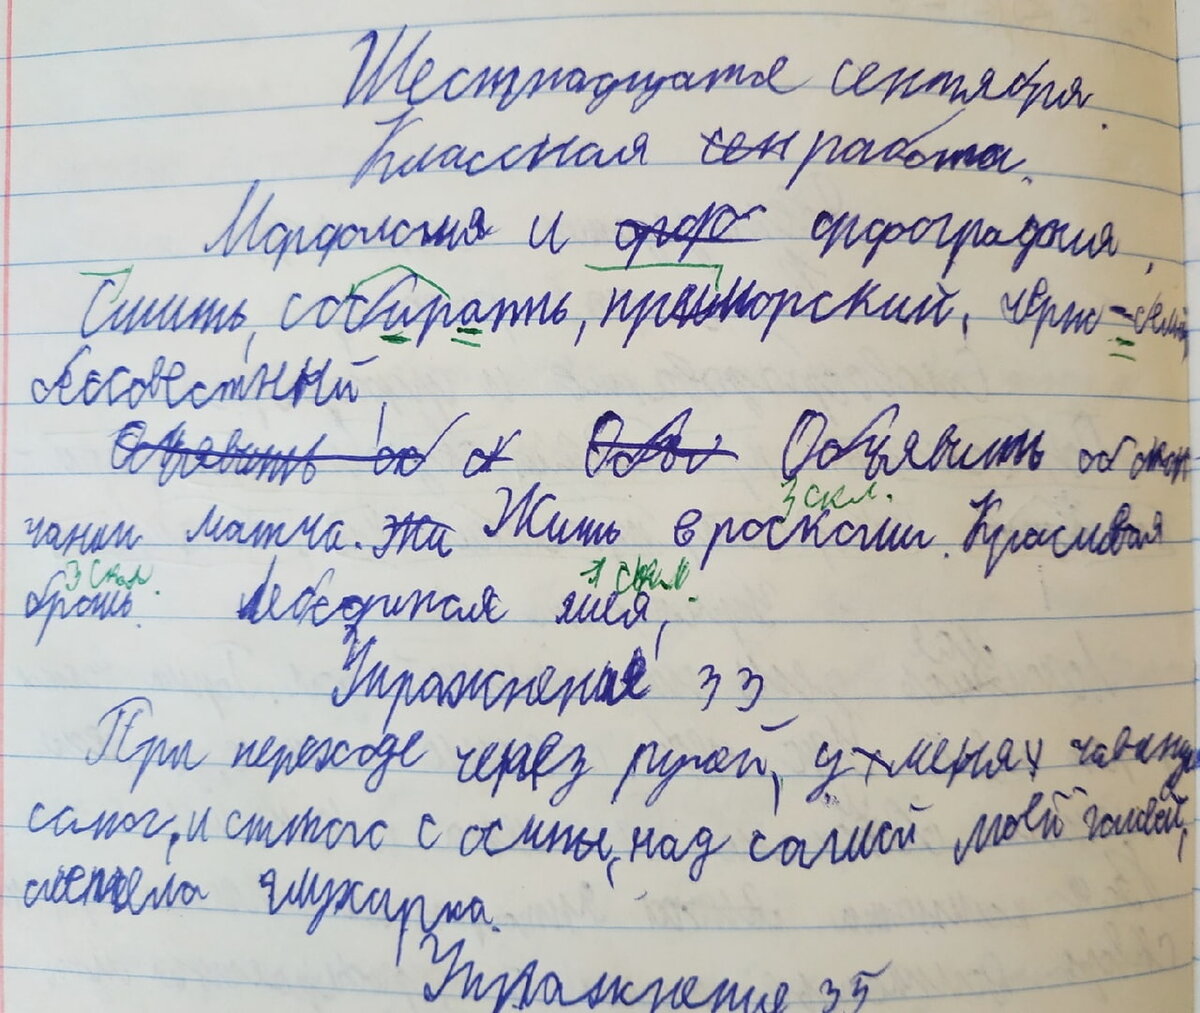 Шестнадцатое сентября.
Классная работа.
Морфология и орфография.
Сшить, собирать, приморский, черно-белый,
бессовестный.
Объявить об окон
чании матча. Жить в роскоши. Красивая
3 скл.
брошь. Лебединая шея.
3 скл. 1 скл.
Упражнение 33
При переходе через ручей, у меня чавкнул
сапог, и с осины, над самой моей головой,
слетела глухарка.
Упражнение 35